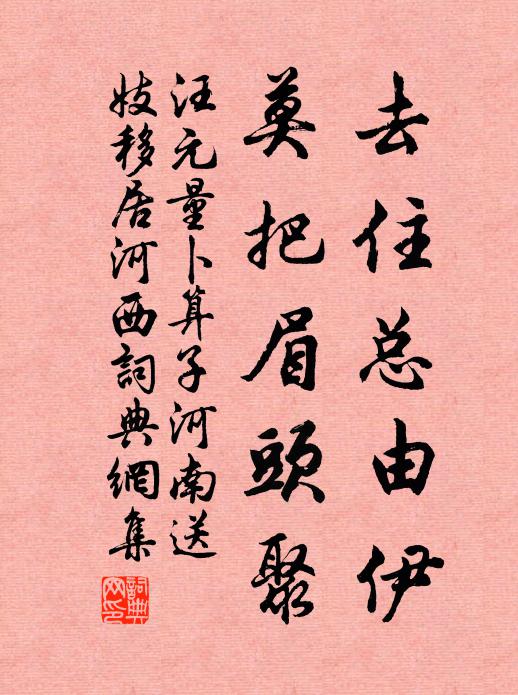 去住总由伊
莫把眉頭聚
汪元量卜算子河南送
妓移居河西詞典網集
詞典網印